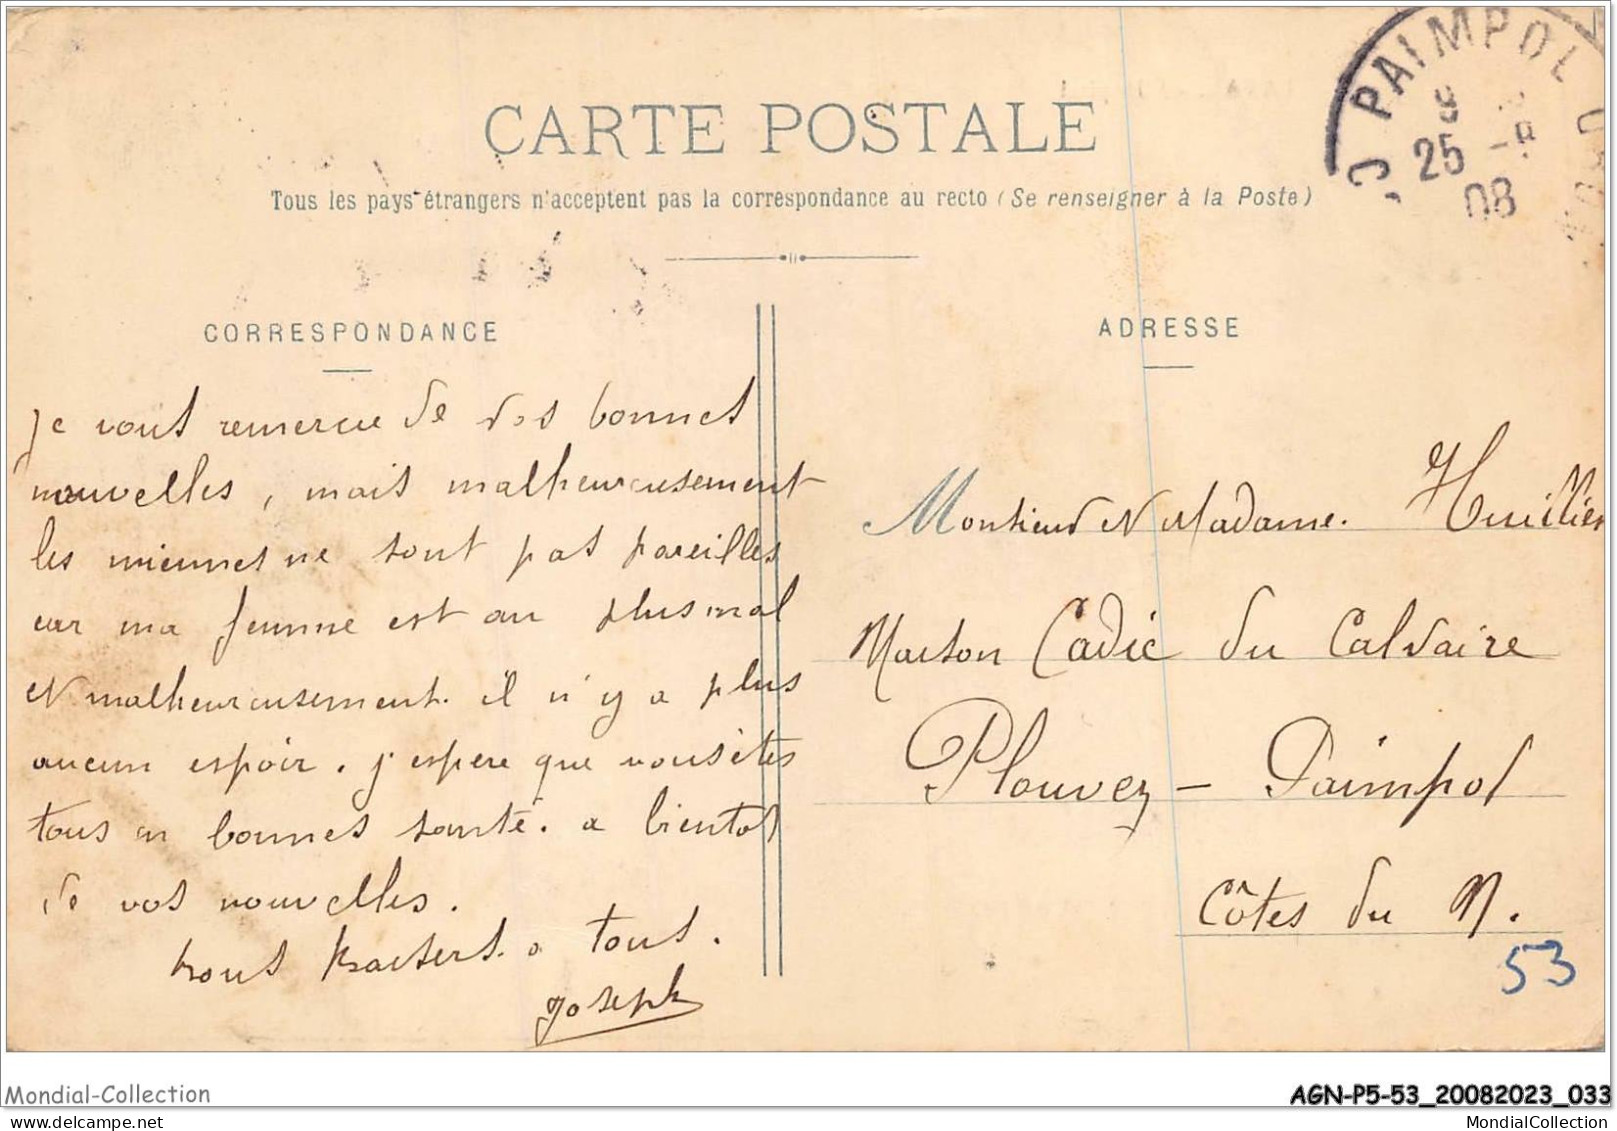 CARTE POSTALE
Tous les pays étrangers n'acceptent pas la correspondance au recto (Se renseigner à la Poste)
PAIMPOL
9
25 -8
08
CORRESPONDANCE
ADRESSE
Je vous remercie de vos bonnes
nouvelles, mais malheureusement
les miennes ne sont pas pareilles
car ma femme est au plus mal
et malheureusement. il n'y a plus
aucun espoir. j'espere que vous êtes
tous en bonnes santé. a bientot
de vos nouvelles.
baisers. a tous.
Joseph
Monsieur et Madame. Huillier
Maison Cadic du Calvaire
Plouvez - Paimpol
Côtes du N.
53
Mondial-Collection
AGN-P5-53_20082023_033
MondialCollection